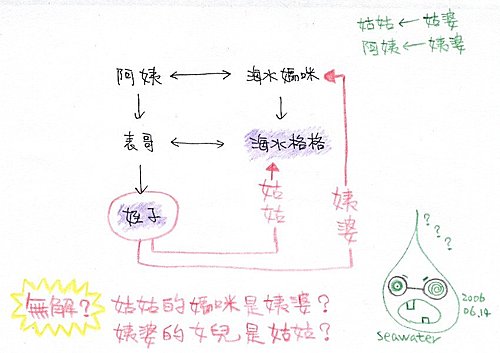 姑姑←姑婆
阿姨←姨婆
阿姨 ←→ 海水媽咪
表哥 ←→ 海水格格
姪子
姑姑
姨婆
無解? 姑姑的媽咪是姨婆?
姨婆的女兒是姑姑?
? ? ?
2006
06.14
seawater